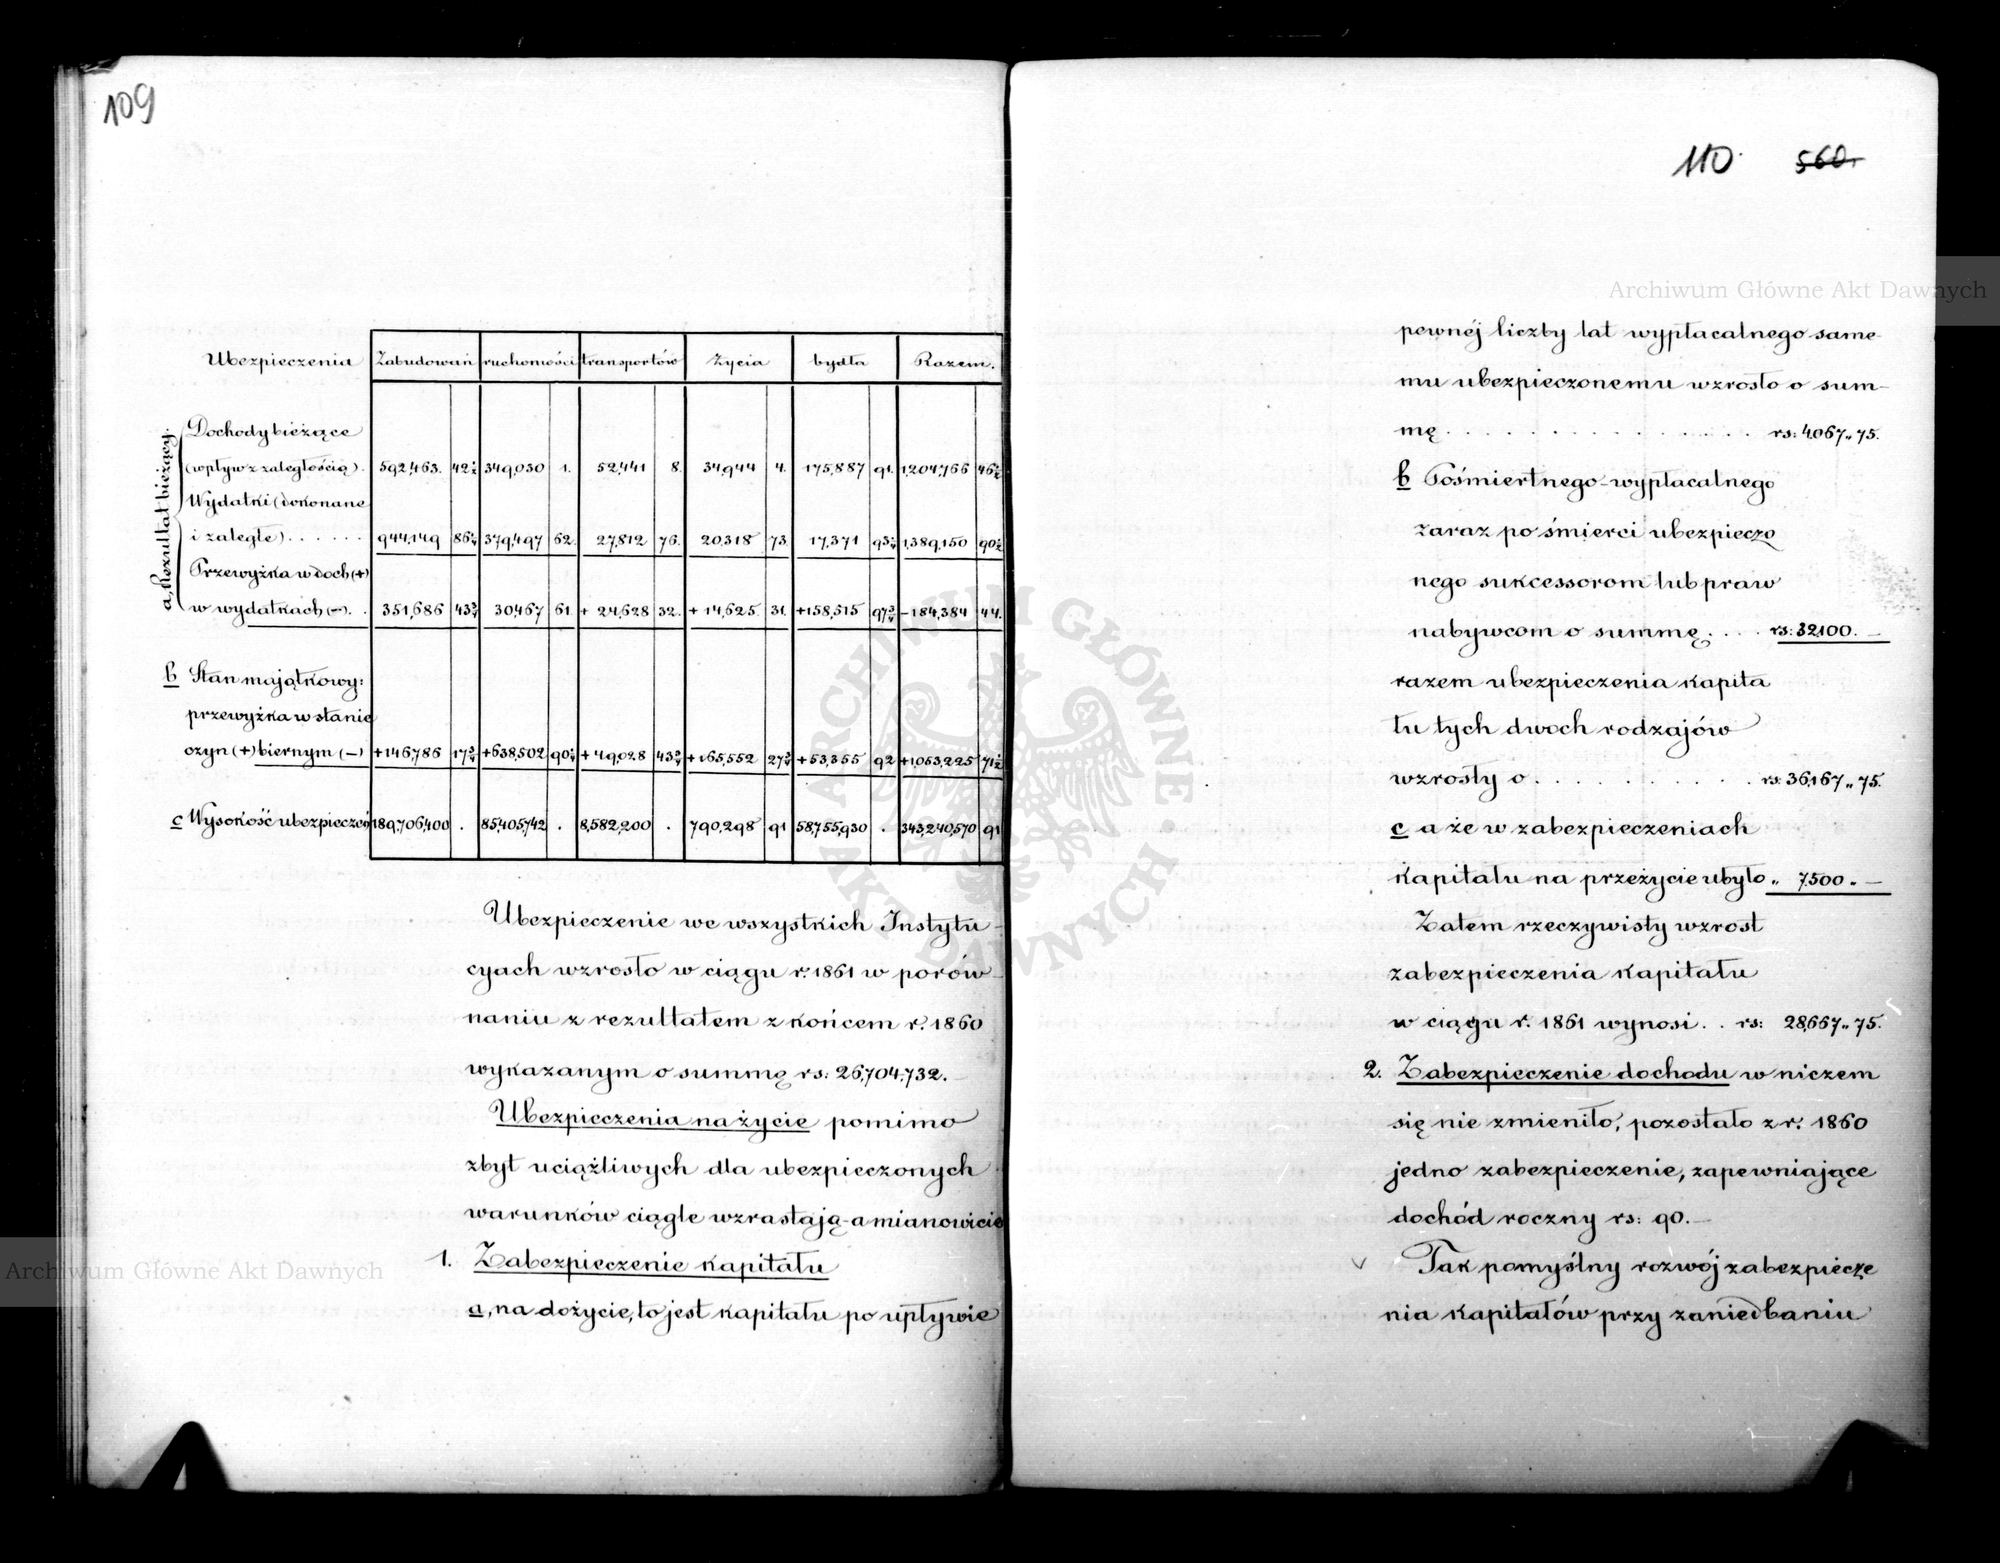 109
Ubezpieczenia Zabudowań ruchomości transportów Życia bydła Razem.
a, Rezultat bieżący.
Dochody bieżące
(wpływ z zaległością). 592,463. 42½ 349,030 1. 52,441 8. 34,944 4. 175,887 91. 1,204,766 46½
Wydatki (dokonane
i zaległe) . . . . . . 944,149 86¼ 379,497 62. 27,812 76. 20,318 73 17,371 93¼ 1,389,150 90½
Przewyżka w doch (+)
w wydatkach (-). . 351,686 43¾ 30,467 61. + 24,628 32. + 14,625. 31. +158,515 97¾ -184,384 44.
b Stan majątkowy:
przewyżka w stanie
czyn (+) biernym (-) +146,786 17¾ +638,502 90¼ + 49,028 43¾ +165,552 27¾ +53,355 92 +1,053,225 71½
c Wysokość ubezpieczeń 189,706,400 . 85,405,742 . 8,582,200 . 790,298 91 58,755,930 . 343,240,570 91
Ubezpieczenie we wszystkich Instytu-
cyach wzrosło w ciągu r. 1861 w porów-
naniu z rezultatem z końcem r. 1860
wykazanym o summę rs: 26,704,732.-
Ubezpieczenia na życie pomimo
zbyt uciążliwych dla ubezpieczonych
warunków ciągle wzrastają - a mianowicie
1. Zabezpieczenie kapitału
a, na dożycie, to jest kapitału po upływie
110. 560.
pewnéj liczby lat wypłacalnego same-
mu ubezpieczonemu wzrosło o sum-
mę . . . . . . . . . . . . . . . rs: 4,067 „ 75.
b Pośmiertnego - wypłacalnego
zaraz po śmierci ubezpieczo
nego sukcessorom lub praw
nabywcom o summę. . . . rs: 32,100. -
razem ubezpieczenia kapita
łu tych dwoch rodzajów
wzrosły o . . . . . . . . . . . rs: 36,167 „ 75.
c a że w zabezpieczeniach
kapitału na przeżycie ubyło „ 7,500 „ -
Zatem rzeczywisty wzrost
zabezpieczenia kapitału
w ciągu r. 1861 wynosi . . rs: 28,667 „ 75.
2. Zabezpieczenie dochodu w niczem
się nie zmieniło, pozostało z r. 1860
jedno zabezpieczenie, zapewniające
dochód roczny rs: 90.-
Tak pomyślny rozwój zabezpiecze
nia kapitałów przy zaniedbaniu
Archiwum Główne Akt Dawnych
Archiwum Główne Akt Dawnych
ARCHIWUM GŁÓWNE AKT DAWNYCH